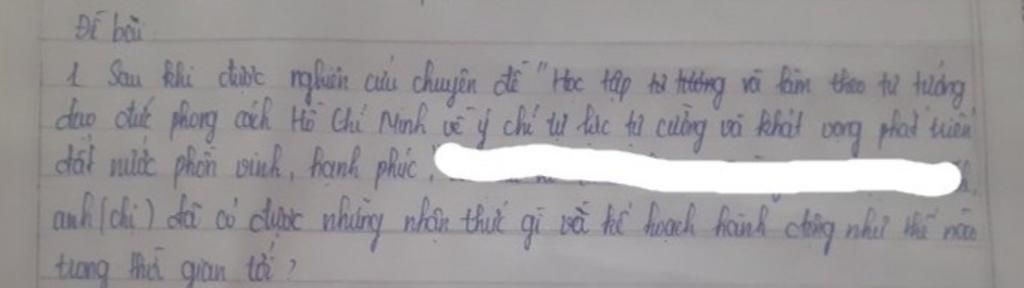 Đề bài
1 Sau khi được nghiên cứu chuyên đề "Học tập tư tưởng và làm theo tư tưởng
đạo đức phong cách Hồ Chí Minh về ý chí tự lực tự cường và khát vọng phát triển
đất nước phồn vinh, hạnh phúc,
anh (chị) đã có được những nhận thức gì và kế hoạch hành động như thế nào
trong thời gian tới?